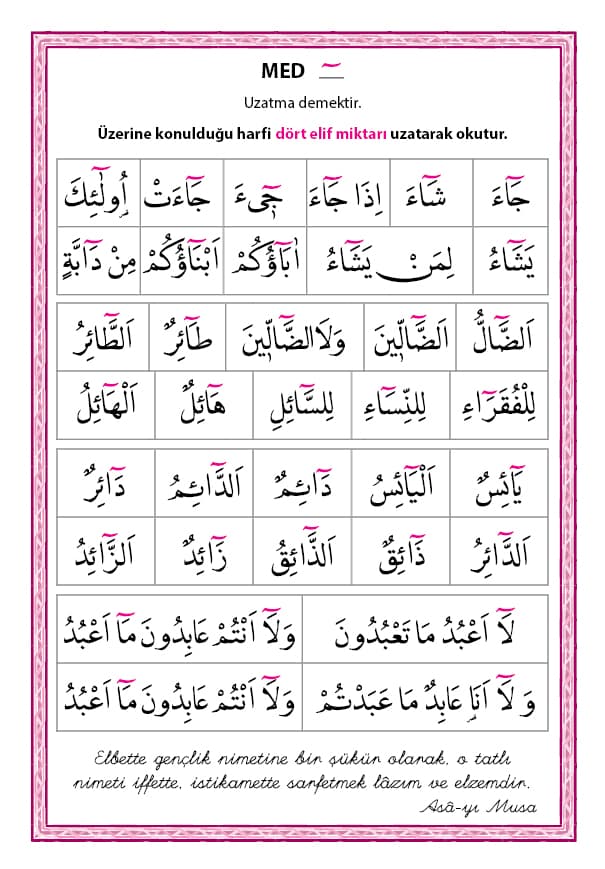 MED ـٓ
Uzatma demektir.
Üzerine konulduğu harfi dört elif miktarı uzatarak okutur.
جَٓاءَ شَٓاءَ اِذَا جَٓاءَ جٖٓىءَ جَٓاءَتْ اُو۬لٰٓئِكَ
يَشَٓاءُ لِمَنْ يَشَٓاءُ اٰبَٓاؤُكُمْ اَبْنَٓاؤُكُمْ مِنْ دَٓابَّةٍ
اَلضَّٓالُّ اَلضَّٓالّٖينَ وَلَاالضَّٓالّٖينَ طَٓائِرٌ اَلطَّٓائِرُ
لِلْفُقَرَٓاءِ لِلنِّسَٓاءِ لِلسَّٓائِلِ هَٓائِلٌ اَلْهَٓائِلُ
يَٓائِسٌ اَلْيَٓائِسُ دَٓائِمٌ اَلدَّٓائِمُ دَٓائِرٌ
اَلدَّٓائِرُ ذَٓائِقٌ اَلذَّٓائِقُ زَٓائِدٌ اَلزَّٓائِدُ
لَٓا اَعْبُدُ مَا تَعْبُدُونَ وَلَٓا اَنْتُمْ عَابِدُونَ مَٓا اَعْبُدُ
وَ لَٓا اَنَا۬ عَابِدٌ مَا عَبَدْتُمْ وَلَٓا اَنْتُمْ عَابِدُونَ مَٓا اَعْبُدُ
Elbette gençlik nimetine bir şükür olarak, o tatlı
nimeti iffette, istikamette sarfetmek lâzım ve elzemdir.
Asâ-yı Musa